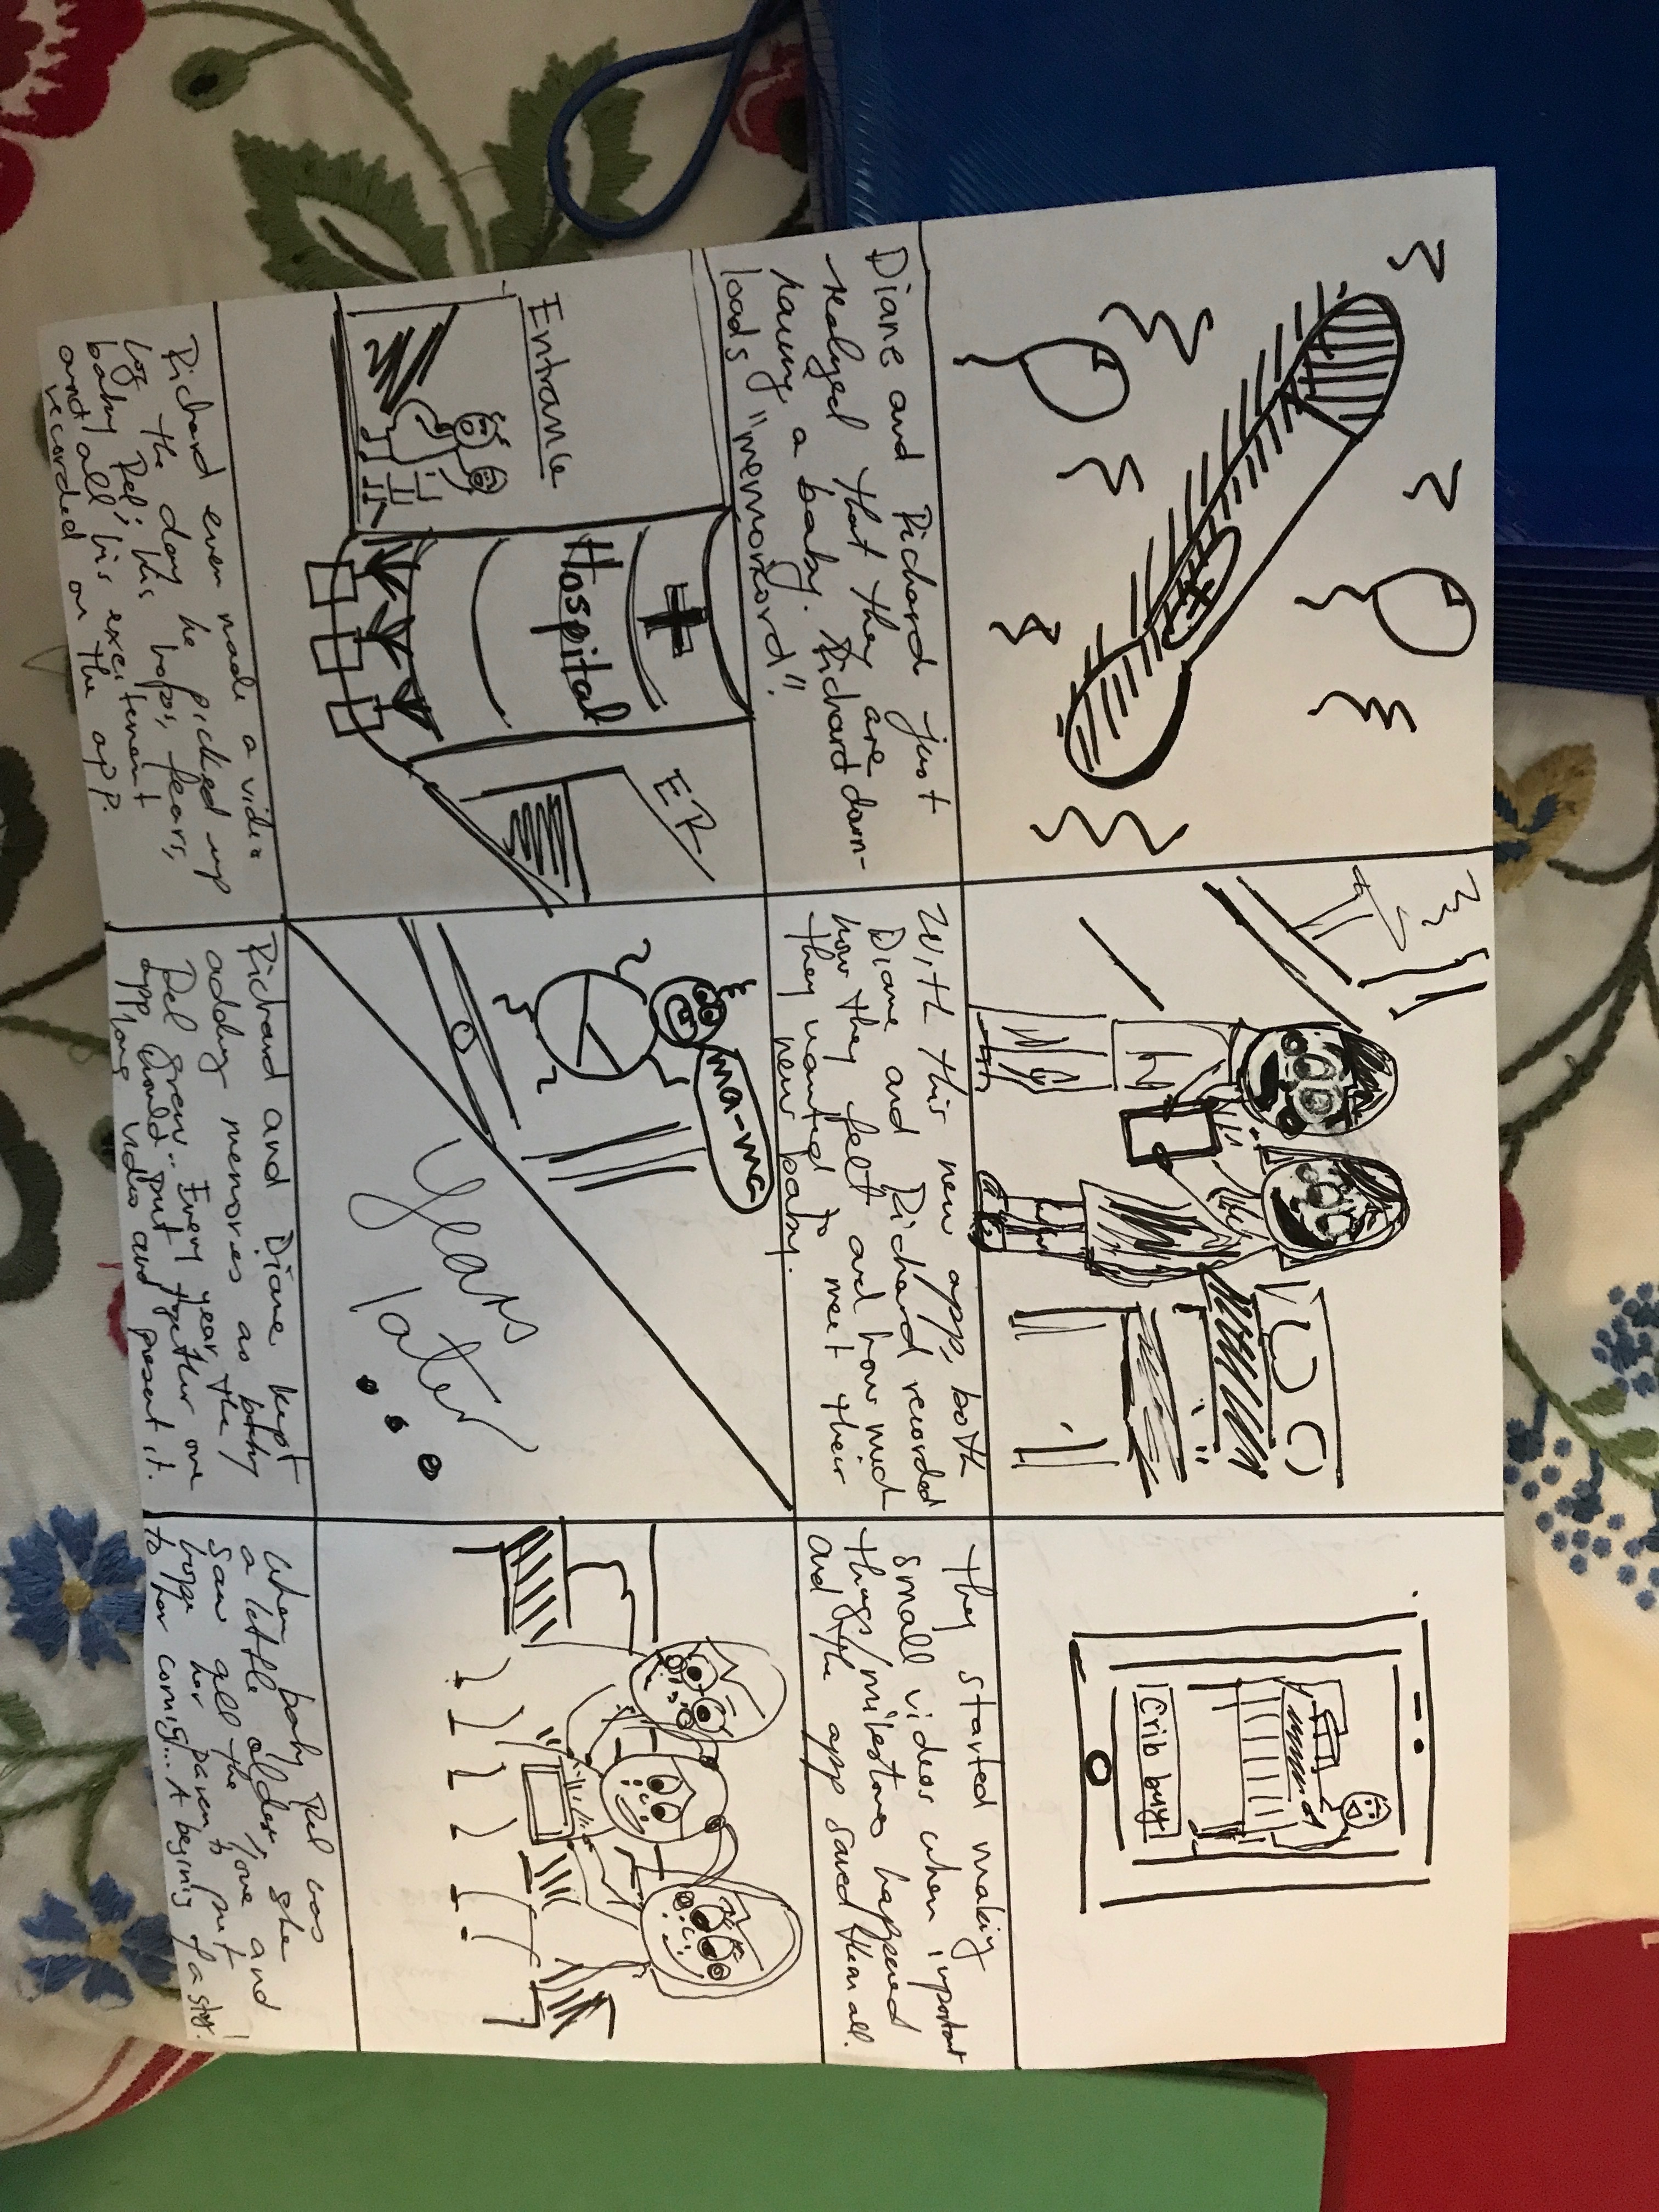 +
Diane and Richard just
realized that they are
having a baby. Richard down-
loads "memomord".
With this new app, both
Diane and Richard recorded
how they felt and how much
they wanted to meet their
new baby.
Crib buy
They started making
small videos when important
things/milestones happened
and the app saved them all.
Entrance
Hospital
ER
Richard even made a video
of the day he picked up
baby Rel; his hopes, fears,
and all his excitement
recorded on the app.
ma-ma
Years
later...
Richard and Diane kept
adding memories as baby
Rel grew.. Every year the
app would put together one
long video and present it.
When baby Rel was
a little older, she
saw all the love and
hope her parents put
to her coming... A begining of a story!